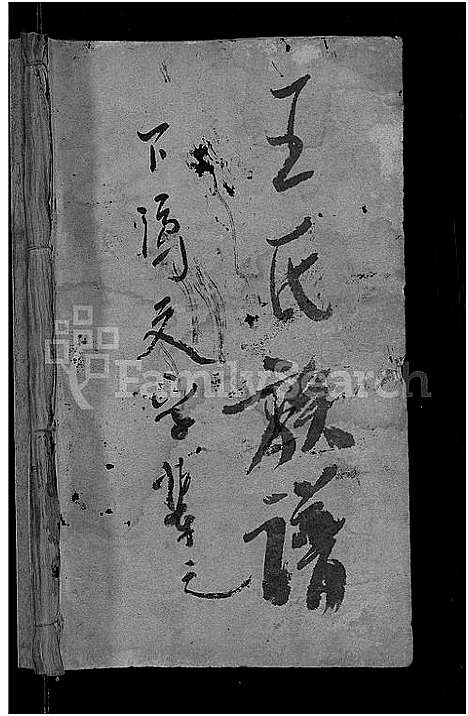 王氏族谱
下湾文字輩之
FamilySearch